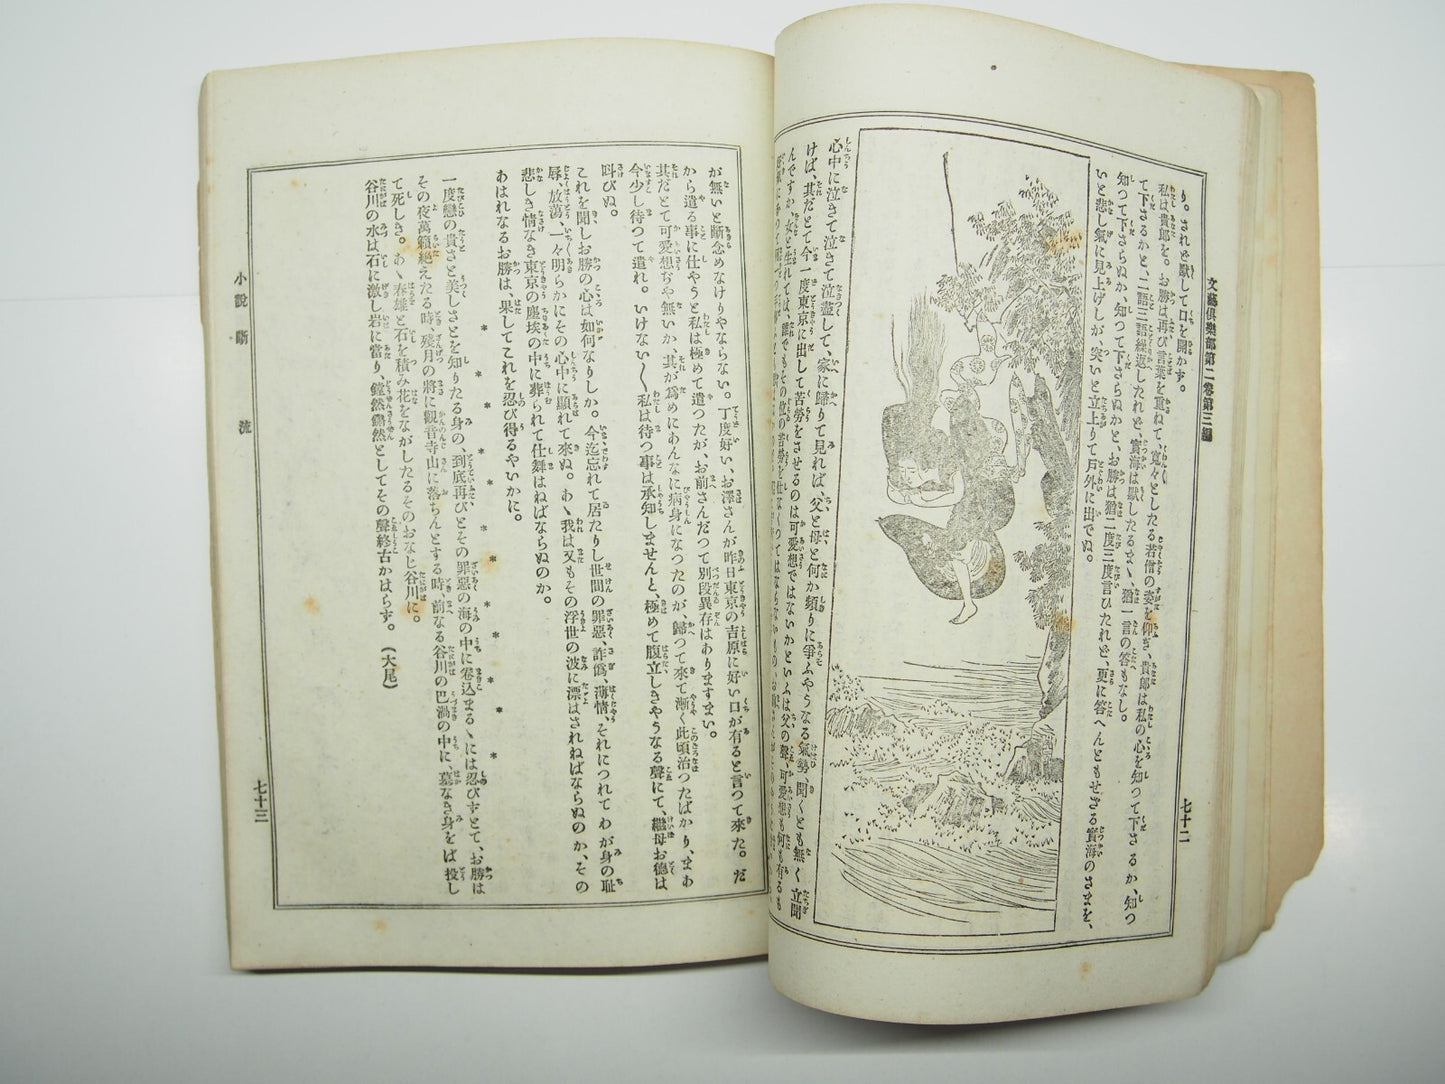 文藝倶樂部第二卷第三編
七十二
り。されど默して口を開かず。
私は貴郎を。お勝は再び言葉を重ねて、寛々としたる若僧の姿を仰ぎ、貴郎は私の心を知つて下さるか、知つ
て下さるかと二語三語繰返したれど、實海は默したるまゝ、猶一言の答もなし。
知つて下さらぬか、知つて下さらぬかと、お勝は猶二度三度言ひたれど、更に答へんともせざる實海のさまを、
いと悲し氣に見上げしが、突いと立上りて戸外に出でぬ。
心中に泣きて泣きて泣盡して、家に歸りて見れば、父と母と何か頻りに爭ふやうなる氣勢、聞くとも無く立聞
けば、其だとて今一度東京に出して苦勞をさせるのは可愛想ではないかといふは父の聲、可愛想も何も有るも
んですか、女と生れては、誰でもその位の苦勞を仕なくつてはならないもの、
が無いと斷念めなけりやならない。丁度好い、お澤さんが昨日東京の吉原に好い口が有ると言つて來た。だ
から遣る事に仕やうと私は極めて遣つたが、お前さんだつて別段異存はありますまい。
其だとて可愛想ぢや無いか、其が爲めにあんなに病身になつたのが、歸つて來て漸く此頃治つたばかり、まあ
今少し待つて遣れ。いけない〱私は待つ事は承知しませんと、極めて腹立しきやうなる聲にて、繼母お德は
叫びぬ。
これを聞しお勝の心は如何なりしか。今迄忘れて居たりし世間の罪惡、詐僞、薄情、それにつれてわが身の恥
辱、放蕩、一々明らかにその心中に顯れて來ぬ。あゝ我は又もその浮世の波に漂はされねばならぬのか、その
悲しき情なき東京の塵埃の中に葬られて仕舞はねばならぬのか。
あはれなるお勝は、果してこれを忍び得るやいかに。
* * * * * * * * *
一度戀の貴さと美しさとを知りたる身の、到底再びとその罪惡の海の中に卷込まるゝには忍びずとて、お勝は
その夜萬籟絶えたる時、殘月の將に觀音寺山に落ちんとする時、前なる谷川の巴渦の中に、墓なき身をば投し
て死しき。あゝ春雄と石を積み花をながしたるそのおなじ谷川に。
谷川の水は石に激し岩に當り、鏜然鞳然としてその聲終古かはらず。（大尾）
小説斷流
七十三